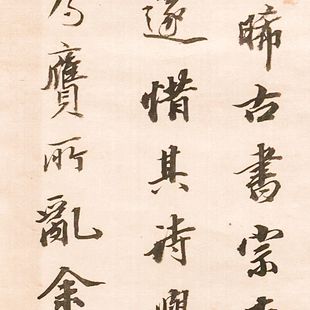 晞古書宗
遂惜其詩興
為贋所亂余